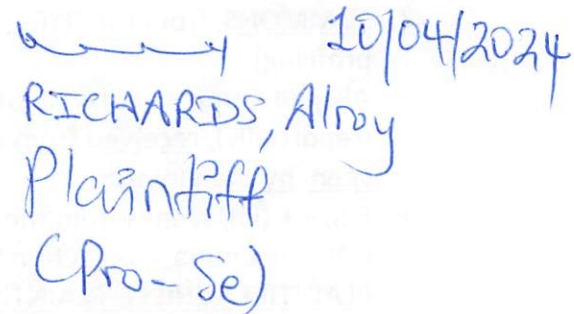 10/04/2024
RICHARDS, Alroy
Plaintiff
(Pro-Se)